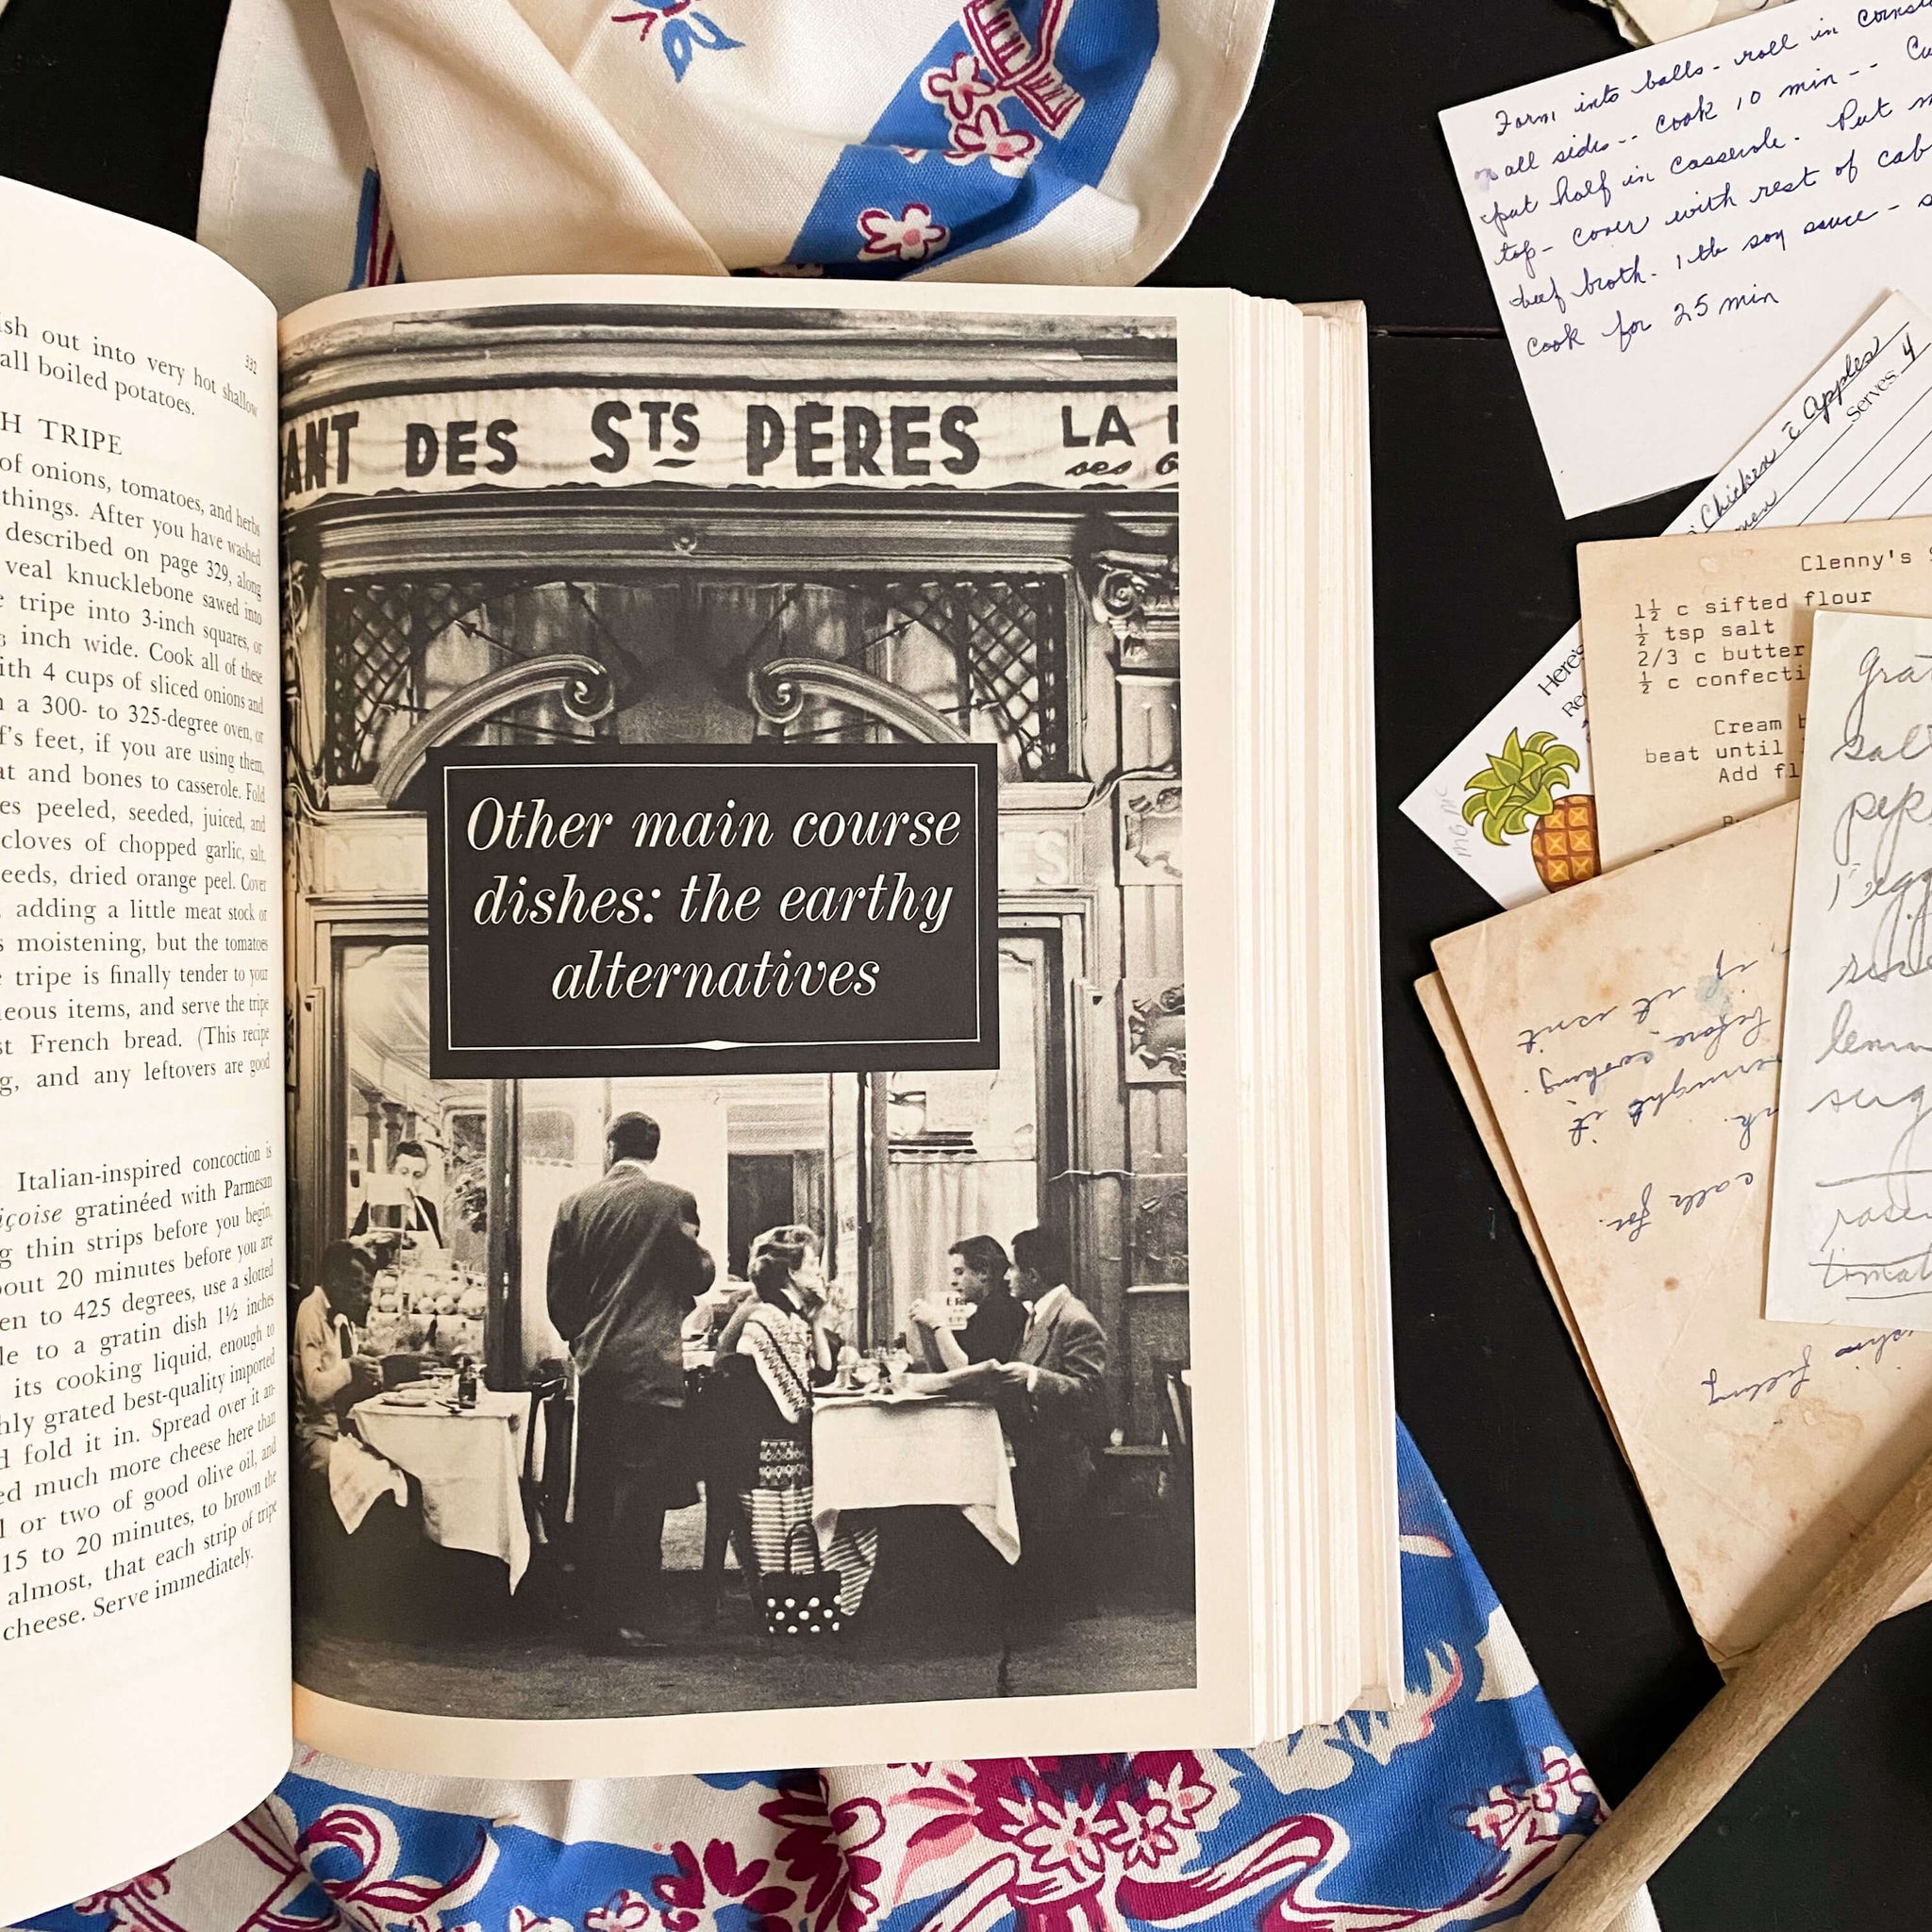 332
ish out into very hot shallow
all boiled potatoes.
H TRIPE
of onions, tomatoes, and herbs
things. After you have washed
described on page 329, along
veal knucklebone sawed into
e tripe into 3-inch squares, or
inch wide. Cook all of these
ith 4 cups of sliced onions and
n a 300- to 325-degree oven, or
f's feet, if you are using them,
at and bones to casserole. Fold
es peeled, seeded, juiced, and
cloves of chopped garlic, salt,
eeds, dried orange peel. Cover
, adding a little meat stock or
s moistening, but the tomatoes
e tripe is finally tender to your
neous items, and serve the tripe
st French bread. (This recipe
g, and any leftovers are good
Italian-inspired concoction is
içoise gratinéed with Parmesan
g thin strips before you begin,
bout 20 minutes before you are
en to 425 degrees, use a slotted
le to a gratin dish 1½ inches
its cooking liquid, enough to
hly grated best-quality imported
d fold it in. Spread over it an-
ed much more cheese here than
l or two of good olive oil, and
15 to 20 minutes, to brown the
almost, that each strip of tripe
cheese. Serve immediately.
ANT DES STS PÈRES LA
ses
Other main course
dishes: the earthy
alternatives
Form into balls - roll in cornst
on all sides -- cook 10 min -- Cu
put half in casserole. Put m
top - cover with rest of cab
beef broth. 1 tb soy sauce - s
cook for 25 min
Chicken c̄ Apples
Serves 4
Here's
Re
Clenny's S
1½ c sifted flour
½ tsp salt
2/3 c butter
½ c confecti
Cream b
beat until
Add fl
grat
salt
pep
1 egg
lemon
sug
tomat
if it isn't
before cooking.
overnight it
calls for.